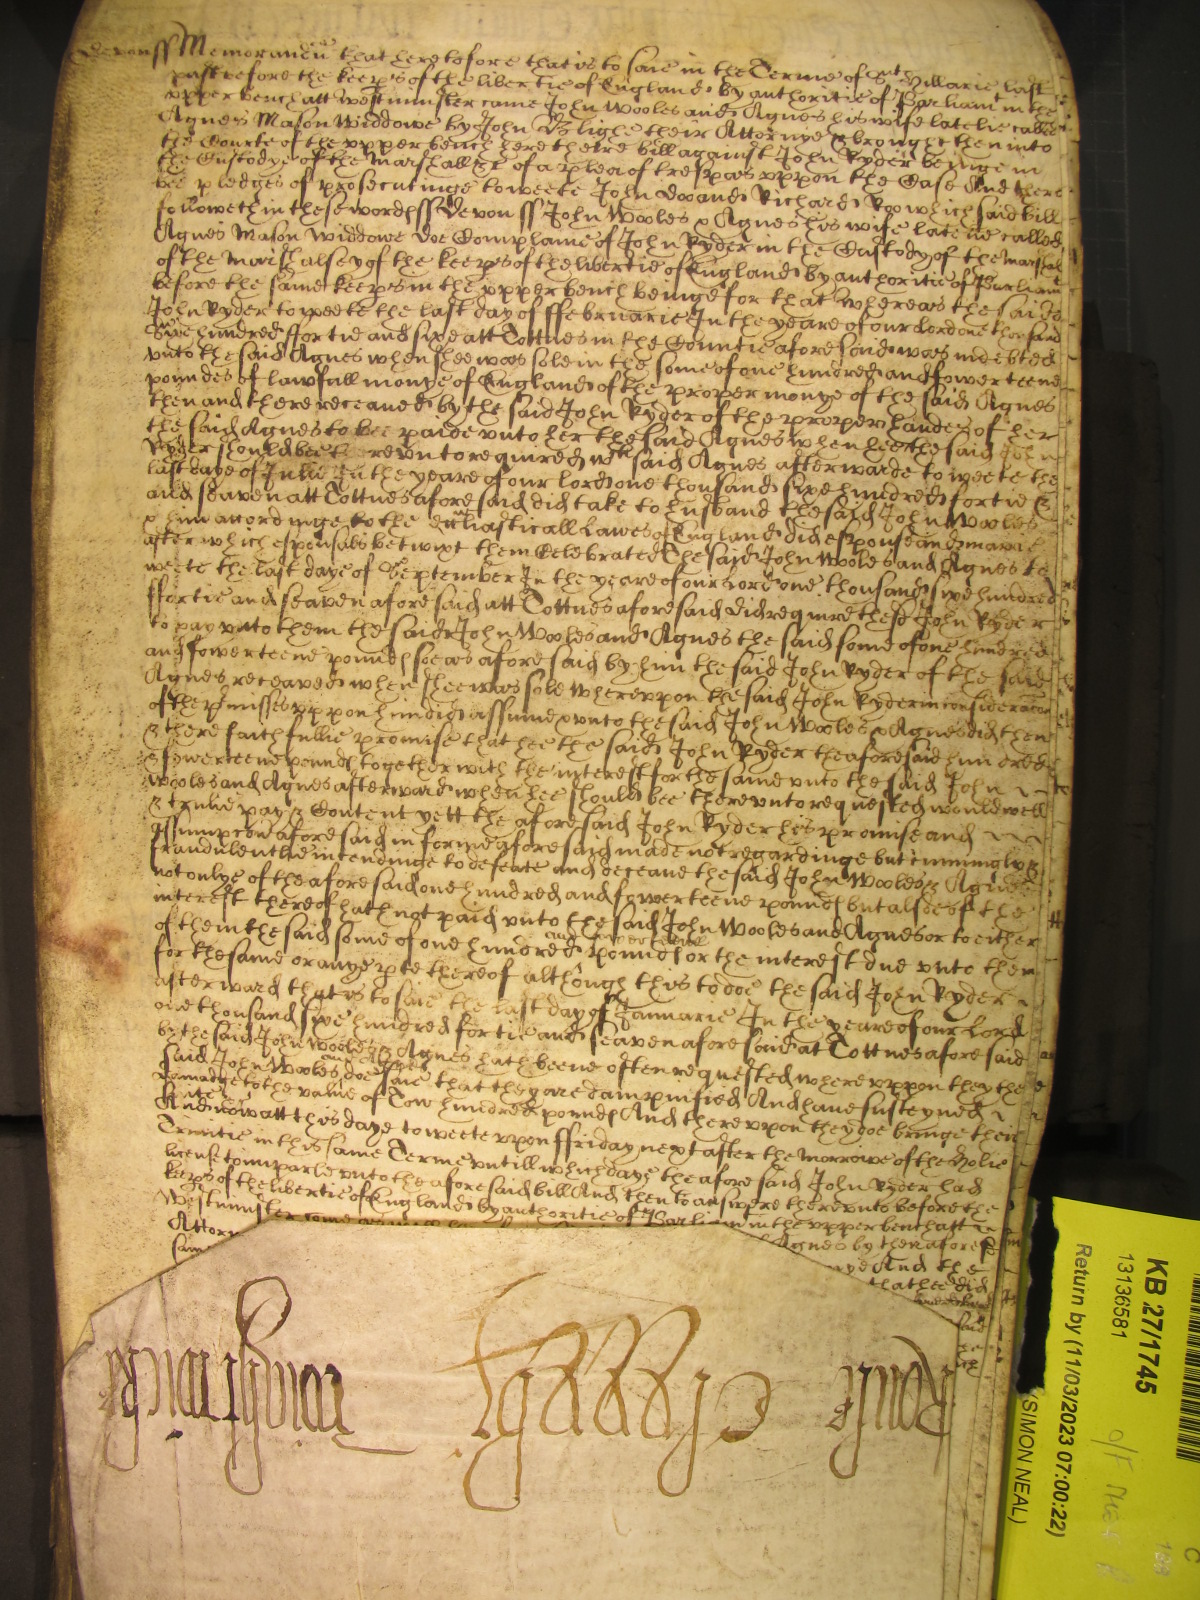 Devon ss Memorandu that heretofore that is to saie in the Terme of St Hillarie last
past before the keeps of the libertie of England by authoritie of Parliamt in the
upper bench att Westminster came John Wooles and Agnes his wife latelie called
Agnes Mason Widdowe by John Blighe their Attornye & brought then into
the Courte of the upper bench here theire bill against John Ryder beinge in
the Custodye of the Marshall &c of a plea of trespas uppon the Case And there
are pledges of prosecutinge to weete John Doo and Richard Roo which said bill
followeth in these words ss Devon ss John Wooles & Agnes his wife latelie called
Agnes Mason Widdowe doe Complaine of John Ryder in the Custody of the Marshal
of the Marshalsey of the keeps of the libertie of England by authoritie of Parliamt
before the same keeps in the upper bench beinge for that whereas the said
John Ryder to weete the last day of ffebruarie In the yeare of our Lord one thousand
sixe hundred ffortie and sixe att Tottnes in the Countie aforesaid was indebted
unto the said Agnes when shee was sole in the some of one hundred and fowerteene
poundes of lawfull monye of England of the proper monye of the said Agnes
then and there receaved by the said John Ryder of the proper handes of her
the said Agnes to bee paide unto her the said Agnes when hee the said John
Ryder should bee thereunto required wch said Agnes afterwarde to weete the
last daye of Julie In the yeare of our lord one thousand sixe hundred fortie &
and seaven att Tottnes aforesaid did take to husband the said John Wooles
& him accordinge to the ecclesiasticall Lawes of England did espouse and marie
after which espousals betwixt them Celebrated The said John Wooles and Agnes to
weete the last daye of September In the yeare of our Lord one thousand sixe hundred
ffortie and seaven aforesaid att Tottnes aforesaid did require the sd John Ryder
to pay unto them the said John Wooles and Agnes the said some of one hundred
and fowerteene pounds soe as aforesaid by him the said John Ryder of the said
Agnes receaved when shee was sole whereuppon the said John Ryder in consideracon
of the pmisses uppon him did assume & unto the said John Wooles & Agnes did then
& there faithfullie promise that hee the said John Ryder the aforesaid hundred
& fowerteene pounds together with the interest for the same unto the said John
Wooles and Agnes afterward when hee should bee thereunto requested would well
& trulie pay & Content yett the aforesaid John Ryder his promise and
Assumpcon aforesaid in forme aforesaid made not regardinge but cunningly &
fraudulentlie intendinge to defeate and deceave the said John Wooles & Agnes
not onlye of the aforesaid one hundred and fowerteene pounds but alsoe of the
interest thereof hath not paid unto the said John Wooles and Agnes or to either
of them the said some of one hundred and fowerteene pounds or the interest due unto them
for the same or anye pte thereof although this to doe the said John Ryder
afterward that is to saie the last day of Januarie In the yeare of our Lord
one thousand sixe hundred fortie and seaven aforesaid at Tottnes aforesaid
by the said John Wooles & Agnes hath beene often requested whereuppon they the
said John Wooles and Agnes doe saie that they are dampnified And have susteyned
damadge to the value of Tow hundred pounds And thereuppon they doe bringe their
suite &c
And now att this daye to weete uppon ffriday next after the morrowe of the Holie
Trinitie in this same Terme untill which daye the aforesaid John Ryder had
license to imparle unto the aforesaid bill And then to answere thereunto before the
keeps of the libertie of England by authoritie of Parliamt in the upper bench att
Westminster come
Attorn Agnes by then afore
same And the
that hee did
said
KB 27/1745
13136581
Return by (11/03/2023 07:00:22)
(SIMON NEAL)